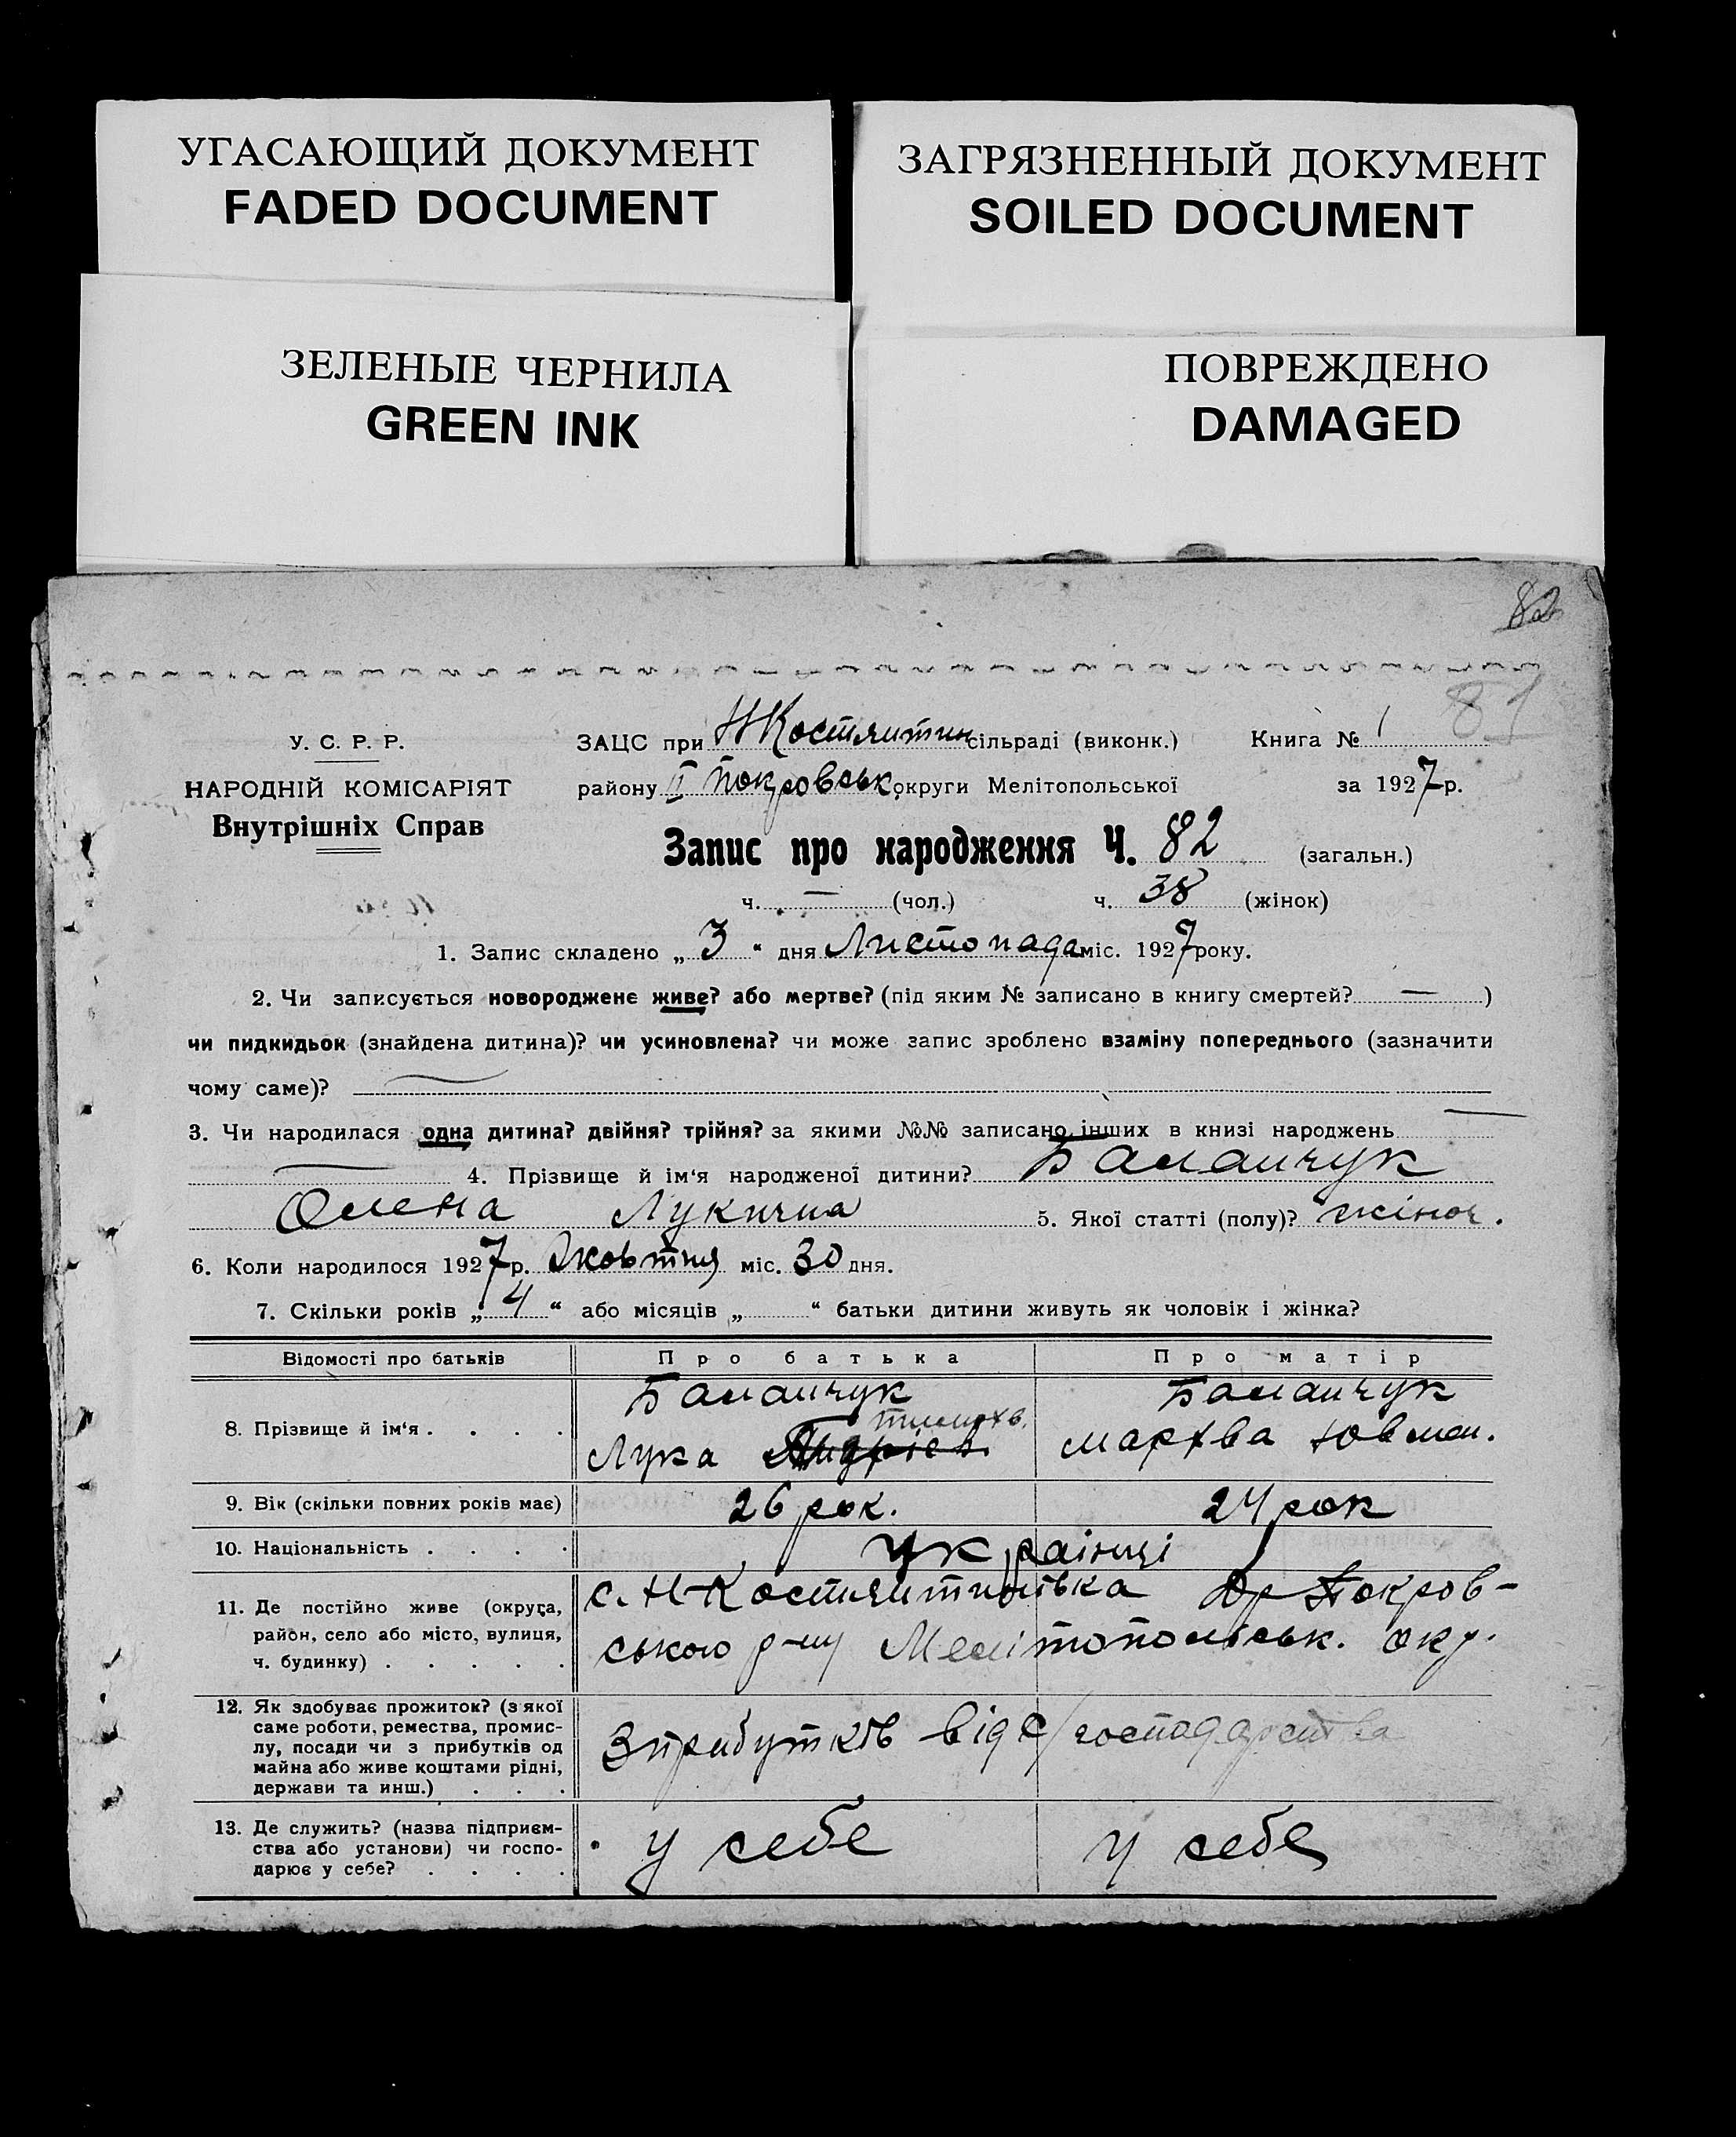 УГАСАЮЩИЙ ДОКУМЕНТ
FADED DOCUMENT
ЗАГРЯЗНЕННЫЙ ДОКУМЕНТ
SOILED DOCUMENT
ЗЕЛЕНЫЕ ЧЕРНИЛА
GREEN INK
ПОВРЕЖДЕНО
DAMAGED
82
81
У. С. Р. Р.
НАРОДНІЙ КОМІСАРІЯТ
Внутрішніх Справ
ЗАЦС при НКостянтин сільраді (виконк.) Книга № 1
району II Покровськ. округи Мелітопольської за 1927 р.
Запис про народження Ч. 82 (загальн.)
ч. — (чол.) ч. 38 (жінок)
1. Запис складено „ 3 “ дня Листопада міс. 1927 року.
2. Чи записується новороджене живе? або мертве? (під яким № записано в книгу смертей? — )
чи пидкидьок (знайдена дитина)? чи усиновлена? чи може запис зроблено взаміну попереднього (зазначити
чому саме)? —
3. Чи народилася одна дитина? двійня? трійня? за якими №№ записано інших в книзі народжень —
— 4. Прізвище й ім‘я народженої дитини? Баланчук
Олена Лукична 5. Якої статті (полу)? жіноч.
6. Коли народилося 1927 р. Жовтня міс. 30 дня.
7. Скільки років „ 4 “ або місяців „ “ батьки дитини живуть як чоловік і жінка?
Відомості про батьків Про батька Про матір
8. Прізвище й ім‘я . . . . Баланчук Баланчук
Тимохв.
Лука Андрієв. Мархва Ювмен.
9. Вік (скільки повних років має) 26 рок. 24 рок
10. Національність . . . . українці
11. Де постійно живе (округа,
район, село або місто, вулиця,
ч. будинку) . . . . .
с. Н-Костянтинівка Др Покров-
ського р-ну Мелітопольськ. окр.
12. Як здобуває прожиток? (з якої
саме роботи, ремества, промис-
лу, посади чи з прибутків од
майна або живе коштами рідні,
держави та инш.) . . .
З прибутків від с/господарства
13. Де служить? (назва підприєм-
ства або установи) чи госпо-
дарює у себе? . . . .
у себе у себе